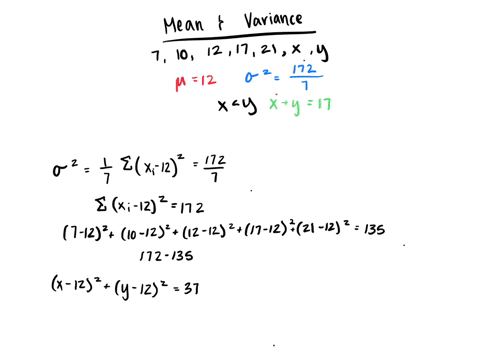 Mean & Variance
7, 10, 12, 17, 21, x, y
μ = 12   σ² = 172/7
x < y   x + y = 17
σ² = 1/7 Σ(xᵢ-12)² = 172/7
Σ(xᵢ-12)² = 172
(7-12)² + (10-12)² + (12-12)² + (17-12)² + (21-12)² = 135
172-135
(x-12)² + (y-12)² = 37